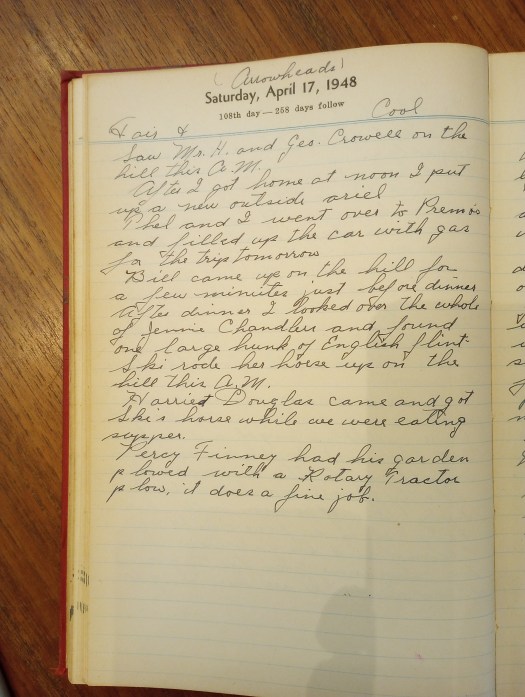 (Arrowheads)
Saturday, April 17, 1948
108th day — 258 days follow
Fair & Cool
Saw Mr. H. and Geo. Crowell on the
hill this A.M.
After I got home at noon I put
up a new outside ariel
Phel and I went over to Premo's
and filled up the car with gas
for the trip tomorrow
Bill came up on the hill for
a few minutes just before dinner
After dinner I looked over the whole
of Jennie Chandlers and found
one large hunk of English flint.
Ski rode her horse up on the
hill this A.M.
Harried Douglas came and got
Ski's horse while we were eating
supper.
Percy Finney had his garden
plowed with a Rotary Tractor
plow, it does a fine job.